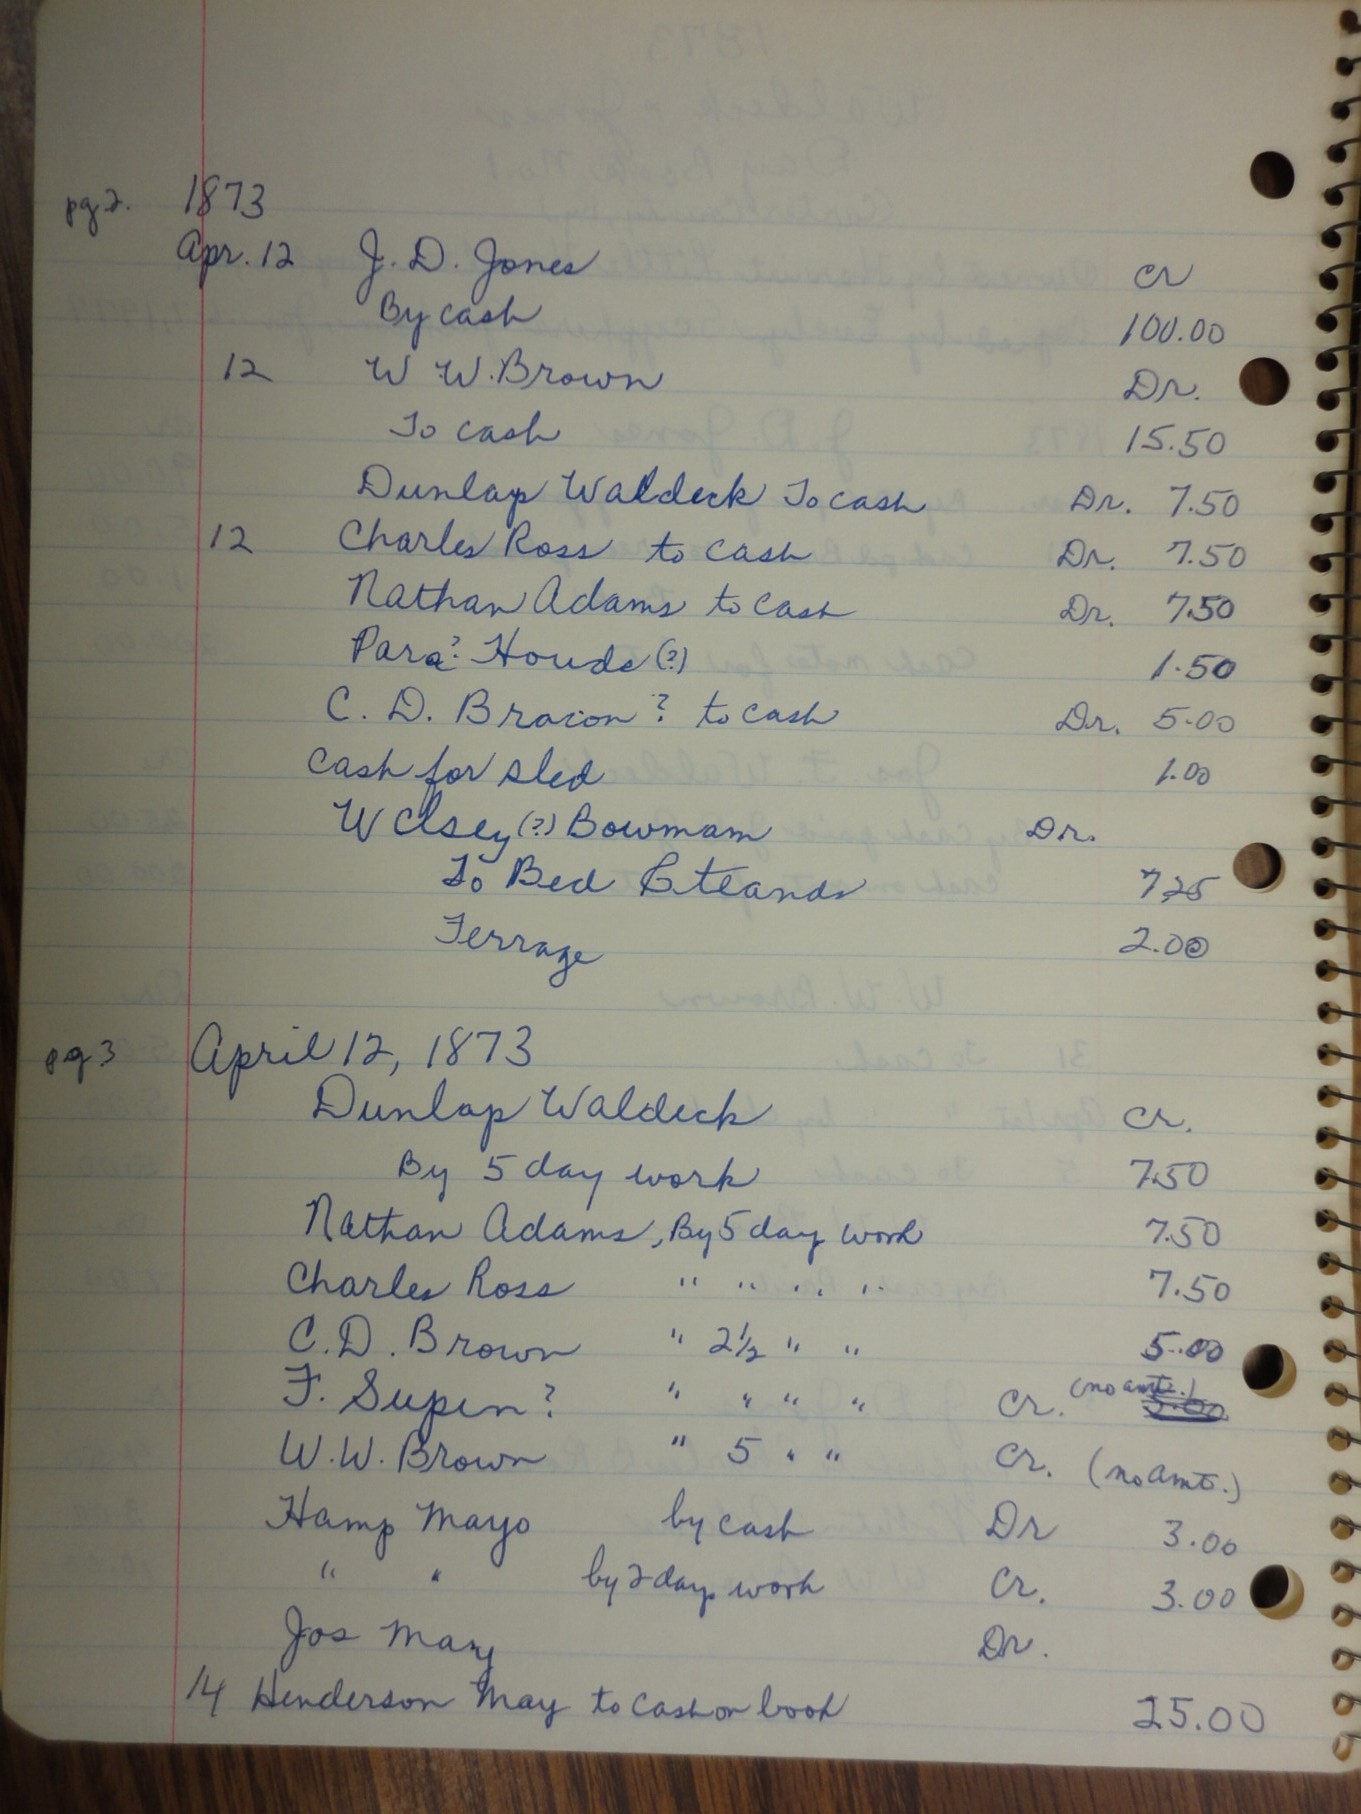 pg 2. 1873
Apr. 12 J. D. Jones cr
By cash 100.00
12 W W. Brown Dr.
To cash 15.50
Dunlap Waldeck To cash Dr. 7.50
12 Charles Ross to cash Dr. 7.50
Nathan Adams to cash Dr. 7.50
Para? Houde (?) 1.50
C. D. Bracon? to cash Dr. 5.00
Cash for sled 1.00
W Clsey (?) Bowmam Dr.
To Bed & teands 7.25
Ferrage 2.00
pg 3 April 12, 1873
Dunlap Waldeck Cr.
By 5 day work 7.50
Nathan Adams, By 5 day work 7.50
Charles Ross " " " " 7.50
C. D. Brown " 2½ " " 5.00
F. Supin? " " " " Cr. (no amt.) 5.00
W. W. Brown " 5 " " Cr. (no amt.)
Hamp Mayo by cash Dr 3.00
" " by 2 day work Cr. 3.00
Jos May Dr.
14 Henderson May to cash on book 25.00